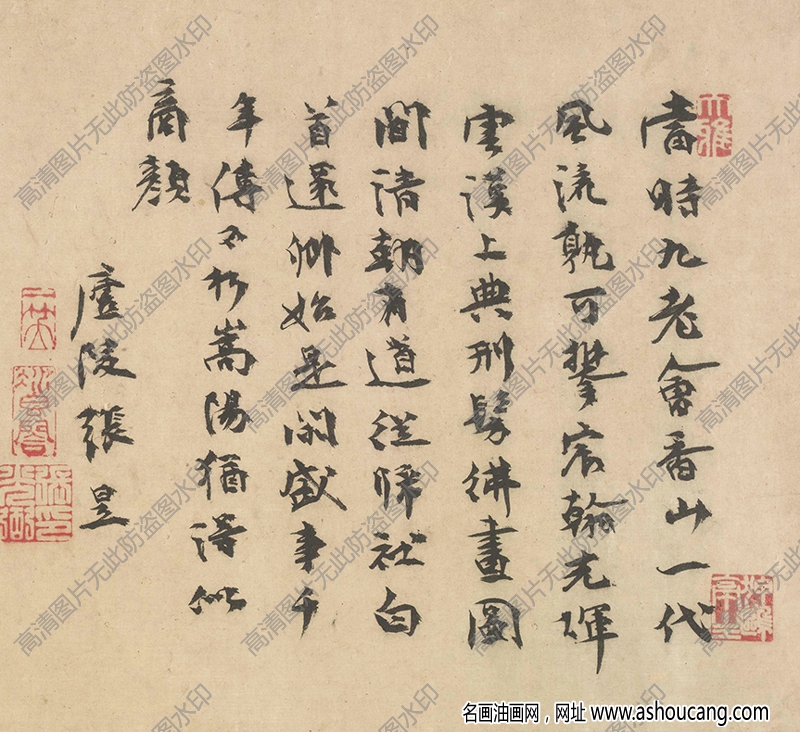 當時九老會香山一代
風流孰可攀宸翰光暉
雲漢上典刑髣彿畫圖
間清朝有道從歸社白
首還鄉始是閑盛事千
年傳不朽嵩陽猶得似
商顏
廬陵張昱
大雅
高清图片无此防盗图水印
名画油画网，网址 www.ashoucang.com